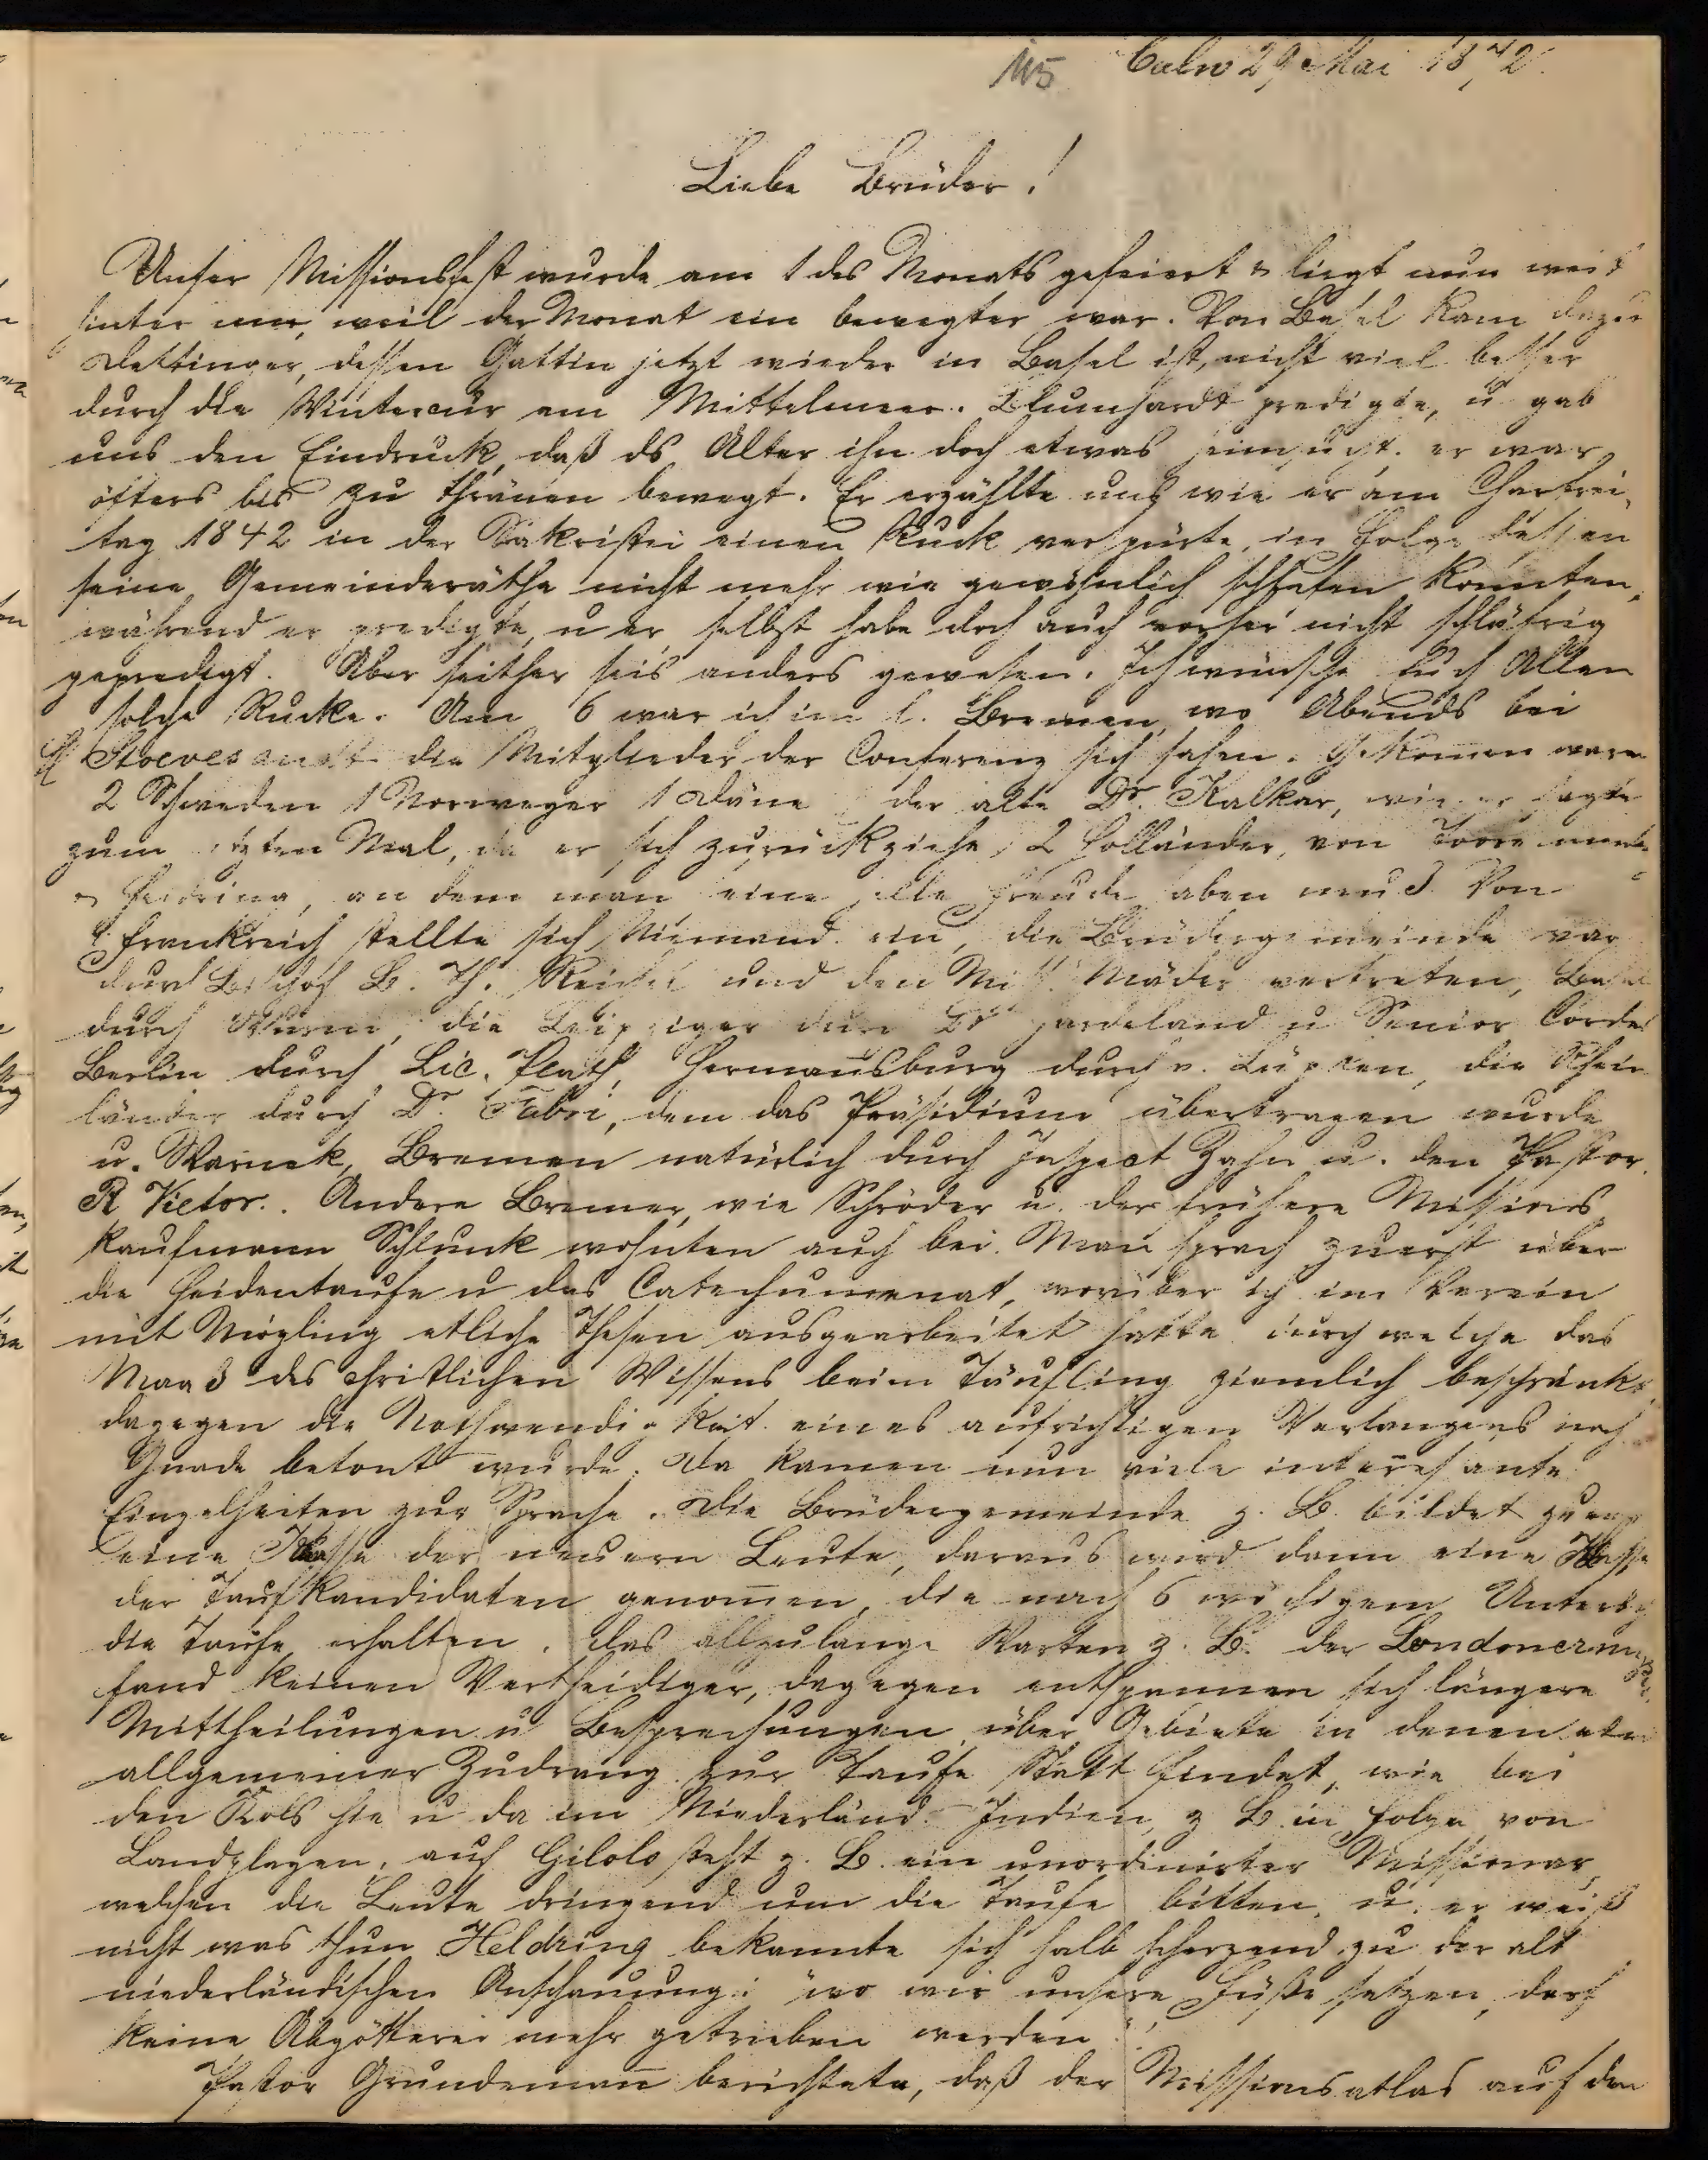 115 Calw 29 Mai 1872.
Liebe Brüder!
Unser Missionsfest wurde am 1 des Monats gefeiert & liegt nun weit
hinter mir, weil der Monat ein bewegter war. Von Basel kam dazu
Oettinger, dessen Gattin jetzt wieder in Basel ist, nicht viel besser
durch die Wintercur am Mittelmeer. Blumhardt predigte, u gab
uns den Eindruck, daß ds Alter ihn doch etwas heimsucht. er war
öfters bis zu Thränen bewegt. Er erzählte uns wie er am Charfrei-
tag 1842 in der Sakristei einen Ruck verspürte, in Folge dessen
seine Gemeinderäthe nicht mehr wie gewöhnlich schlafen konnten,
während er predigte, u er selbst habe doch auch vorher nicht schläfrig
gepredigt. Aber seither sei's anders gewesen. Ich wünsche Euch Allen
solche Rucke. Am 6 war ich in Bremen, wo Abends bei
Stoevesandt die Mitglieder der Conferenz sich sahen. Gekomen waren
2 Schweden 1 Norweger 1 Däne der alte Dr. Kalkar, wie er sagte
zum letzten Mal, da er sich zurückziehe, 2 Holländer, von
& Heldring, an dem man eine Freude haben muß. Von
Frankreich stellte sich Niemand ein, die Brüdergemeinde war
durch Bischof L. Th. Reichel und den Miss. Mäder vertreten, Basel
durch Wurm, die Leipziger durch Dr Hardeland u Senior Cordes
Berlin durch Lic. Plath, Hermansburg durch v. Lüpken, die Rhein-
länder durch Dr. Fabri, dem das Präsidium übertragen wurde
u. Warneck, Bremen natürlich durch Inspect Zahn u. den Pastor
R Vietor. Andere Bremer, wie Schröder u. der frühere Missions
kaufmann Schlunck wohnten auch bei. Man sprach zuerst über
die Heidentaufe u das Catechumenat, worüber ich im Verein
mit Mögling etliche Thesen ausgearbeitet hatte durch welche das
Maas des christlichen Wissens beim Täufling ziemlich beschränkt,
dagegen die Nothwendigkeit eines aufrichtigen Verlangens nach
Gnade betont wurde. Da kamen nun viele interessante
Einzelheiten zur Sprache. Die Brüdergemeinde z. B. bildet zuerst
eine Klasse der neuern Leute, daraus wird dann eine Klasse
der Taufkandidaten genomen, die nach 6 wöchigem Unterricht
die Taufe erhalten. Das allzulange Warten z. B. der Londoner
fand keinen Vertheidiger, dagegen entspannen sich längere
Mittheilungen u Besprechungen über Gebiete in denen
allgemeiner Zudrang zur Taufe Statt findet, wie bei
den Kols hie u da im Niederländ. Indien, z B in Folge von
Landplagen, auf Gilolo steht z. B. ein unordinirter Missionar
welchen die Leute dringend um die Taufe bitten, u. er weiß
nicht was thun. Heldring bekannte sich halb scherzend zu der alt
niederländischen Anschauung: "wo wir unsere Füße setzen, darf
keine Abgötterei mehr getrieben werden."
Pastor Grundeman berichtete, daß der Missionsatlas auf den